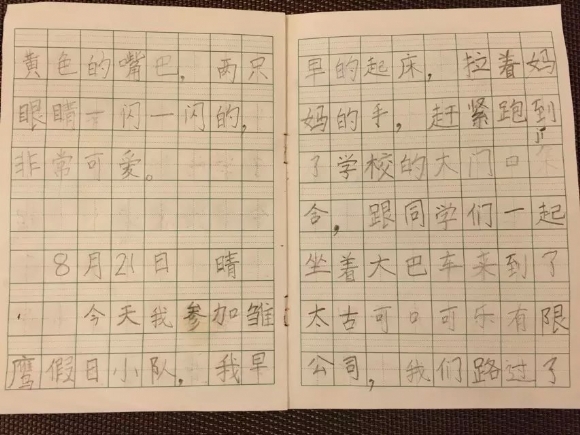 黄色的嘴巴，两只
眼睛一闪一闪的，
非常可爱。
8月21日 晴
今天我参加雏
鹰假日小队，我早
早的起床，拉着妈
妈的手，赶紧跑到
了学校的大门口集
合，跟同学们一起
坐着大巴车来到了
太古可口可乐有限
公司，我们路过了